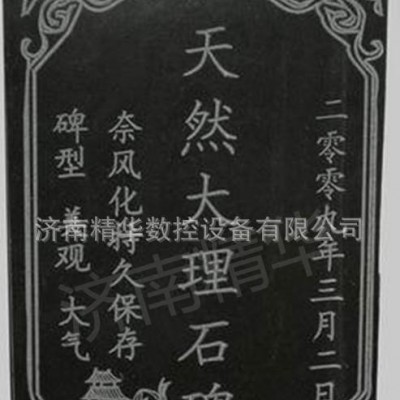 二零零九年三月二日
天然大理石碑
奈风化持久保存
碑型 美观 大气
济南精华数控设备有限公司
济南精华